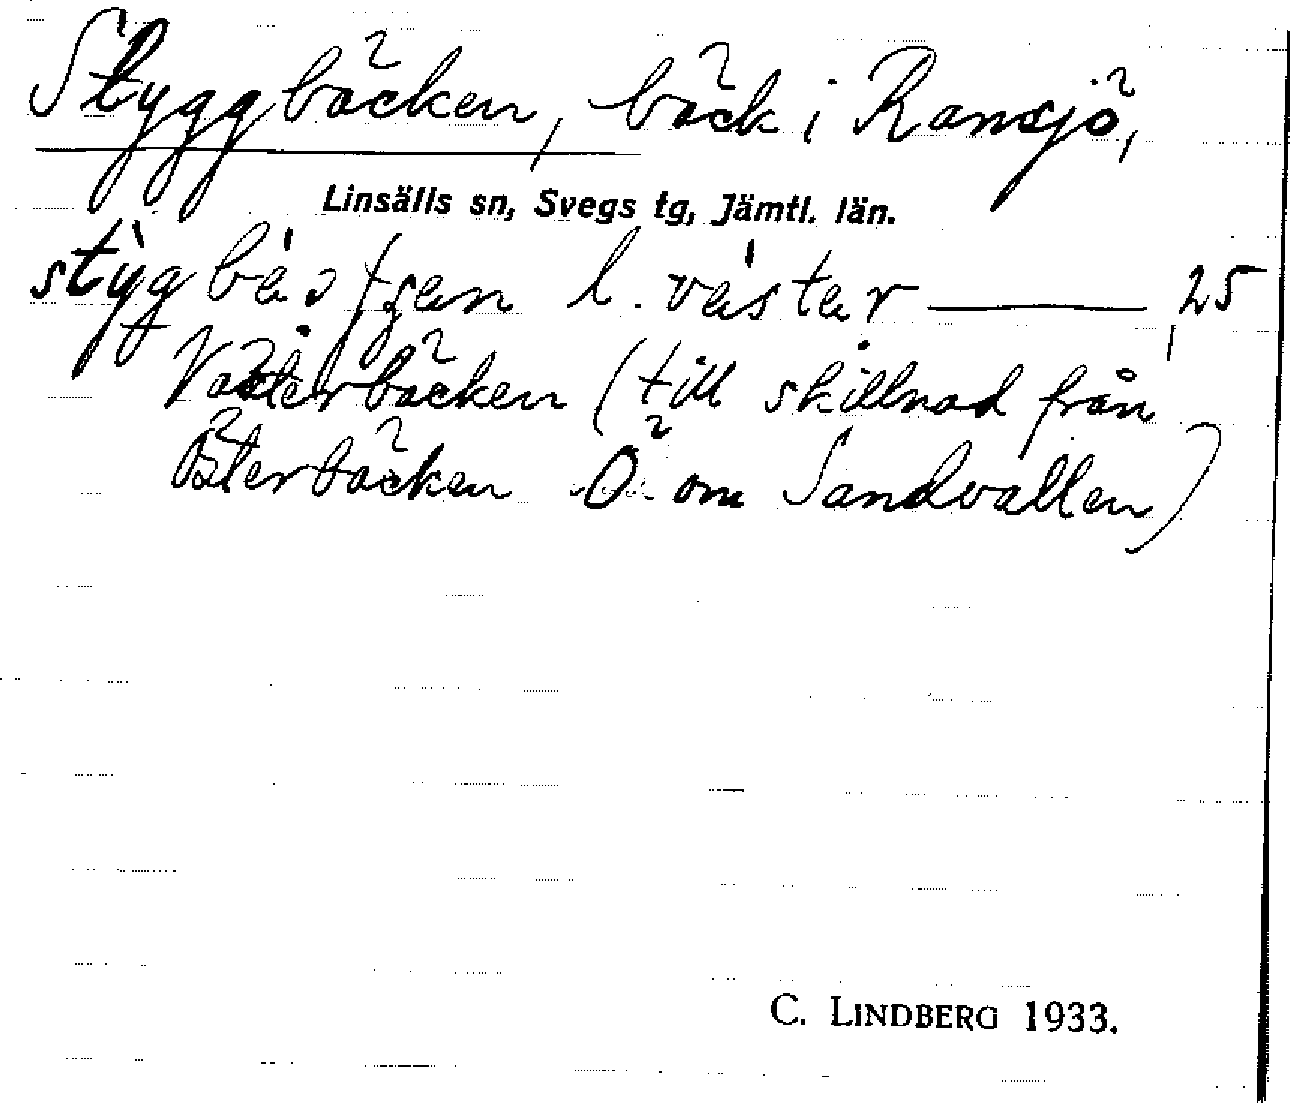 Styggbäcken, bäck i Ransjö,
Linsälls sn, Svegs tg, Jämtl. län.
l. västar — 25
Västerbäcken (till skillnad från
Österbäcken Ö om Sandvallen)
C. LINDBERG 1933.